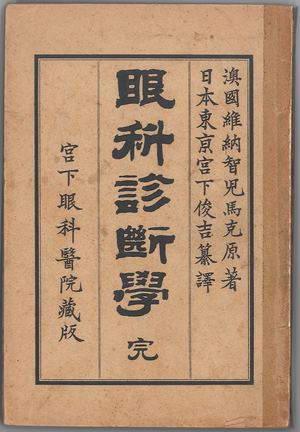 澳國維納智児馬克原著
日本東京宮下俊吉纂譯
眼科診斷學 完
宮下眼科醫院藏版